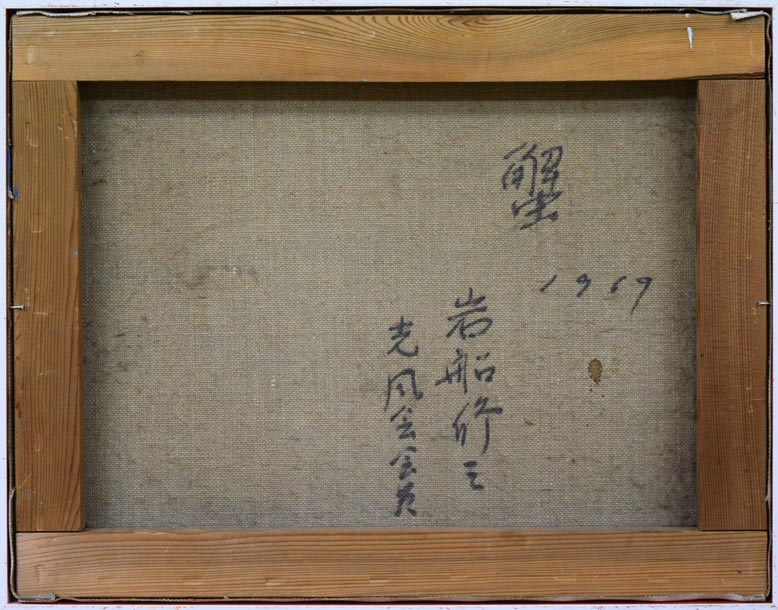 蟹
1969
岩船修三
光風会会員